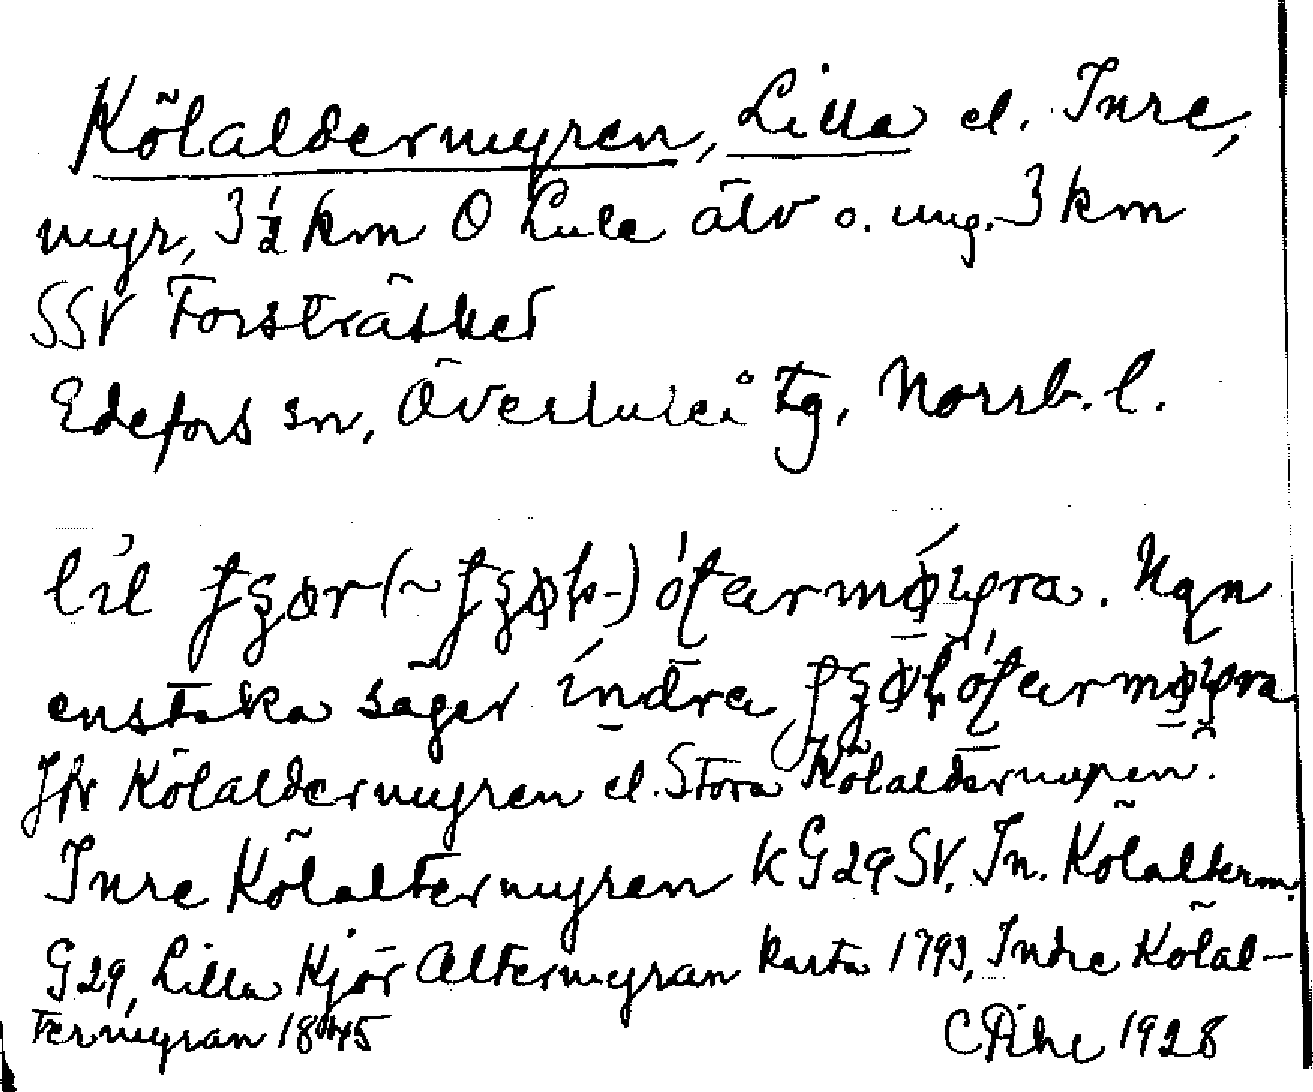 Kölaldermyren, Lilla el. Inre,
myr, 3½ km O Lule älv o. ung. 3 km
SSV Forsträsket
Edefors sn, Överluleå tg, Norrb. l.
lil
Ngn
enstaka säger
Jfr Kölaldermyren el. Stora Kölaldermyren.
Inre Kölaltermyren k G29SV. In. Kölalterm.
G29, Lilla Kjör Altermyran karta 1793, Indre Kölal-
termyran 1845 CPihl 1928